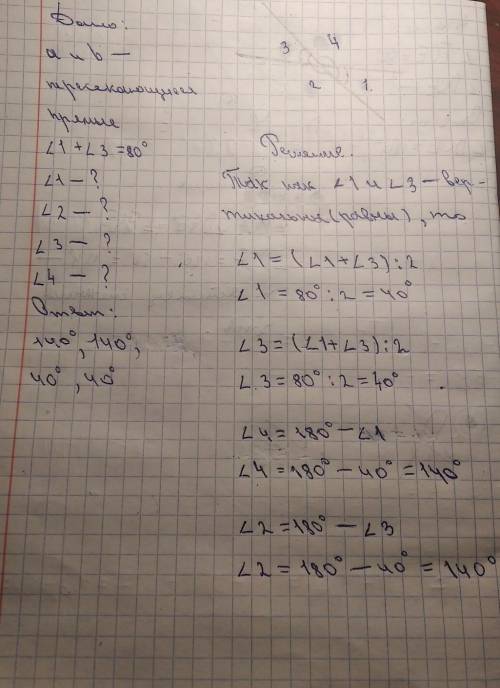 Дано:
a и b —
пересекающиеся
прямые
∠1+∠3=80°
∠1 — ?
∠2 — ?
∠3 — ?
∠4 — ?
Ответ:
140°, 140°,
40°, 40°
3 4
2 1
Решение.
Так как ∠1 и ∠3 — вер-
тикальна (равны), то
∠1 = (∠1+∠3):2
∠1 = 80°:2 = 40°
∠3 = (∠1+∠3):2
∠3 = 80°:2 = 40°
∠4 = 180° — ∠1
∠4 = 180° — 40° = 140°
∠2 = 180° — ∠3
∠2 = 180° — 40° = 140°